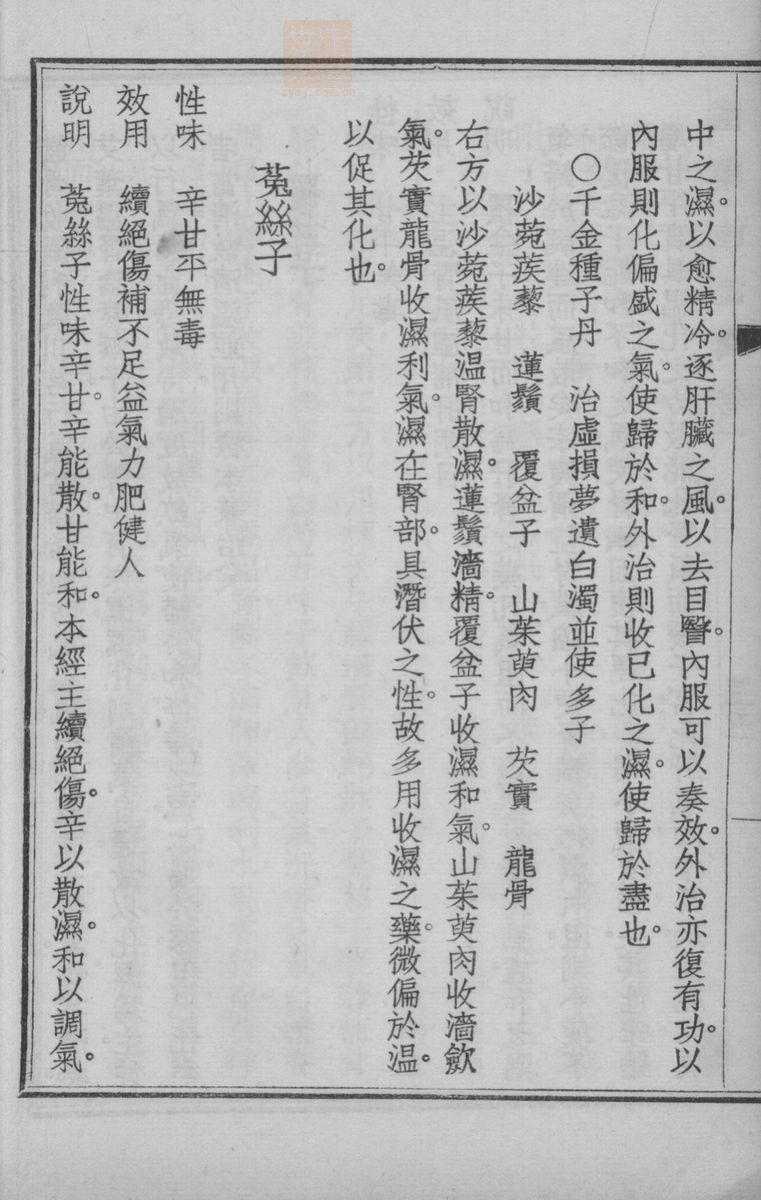 中之濕。以愈精冷。逐肝臟之風。以去目瞖。內服可以奏效。外治亦復有功。以
內服則化偏盛之氣。使歸於和。外治則收已化之濕。使歸於盡也。
○千金種子丹　治虛損夢遺白濁並使多子
沙菀蒺藜　蓮鬚　覆盆子　山茱萸肉　芡實　龍骨
右方以沙菀蒺藜温腎散濕。蓮鬚濇精。覆盆子收濕和氣。山茱萸肉收濇歛
氣。芡實龍骨收濕利氣。濕在腎部。具潛伏之性。故多用收濕之藥。微偏於温。
以促其化也。
菟絲子
性味　辛甘平無毒
效用　續絕傷補不足益氣力肥健人
說明　菟絲子性味辛甘。辛能散。甘能和。本經主續絕傷。辛以散濕。和以調氣。
zysj.com.cn